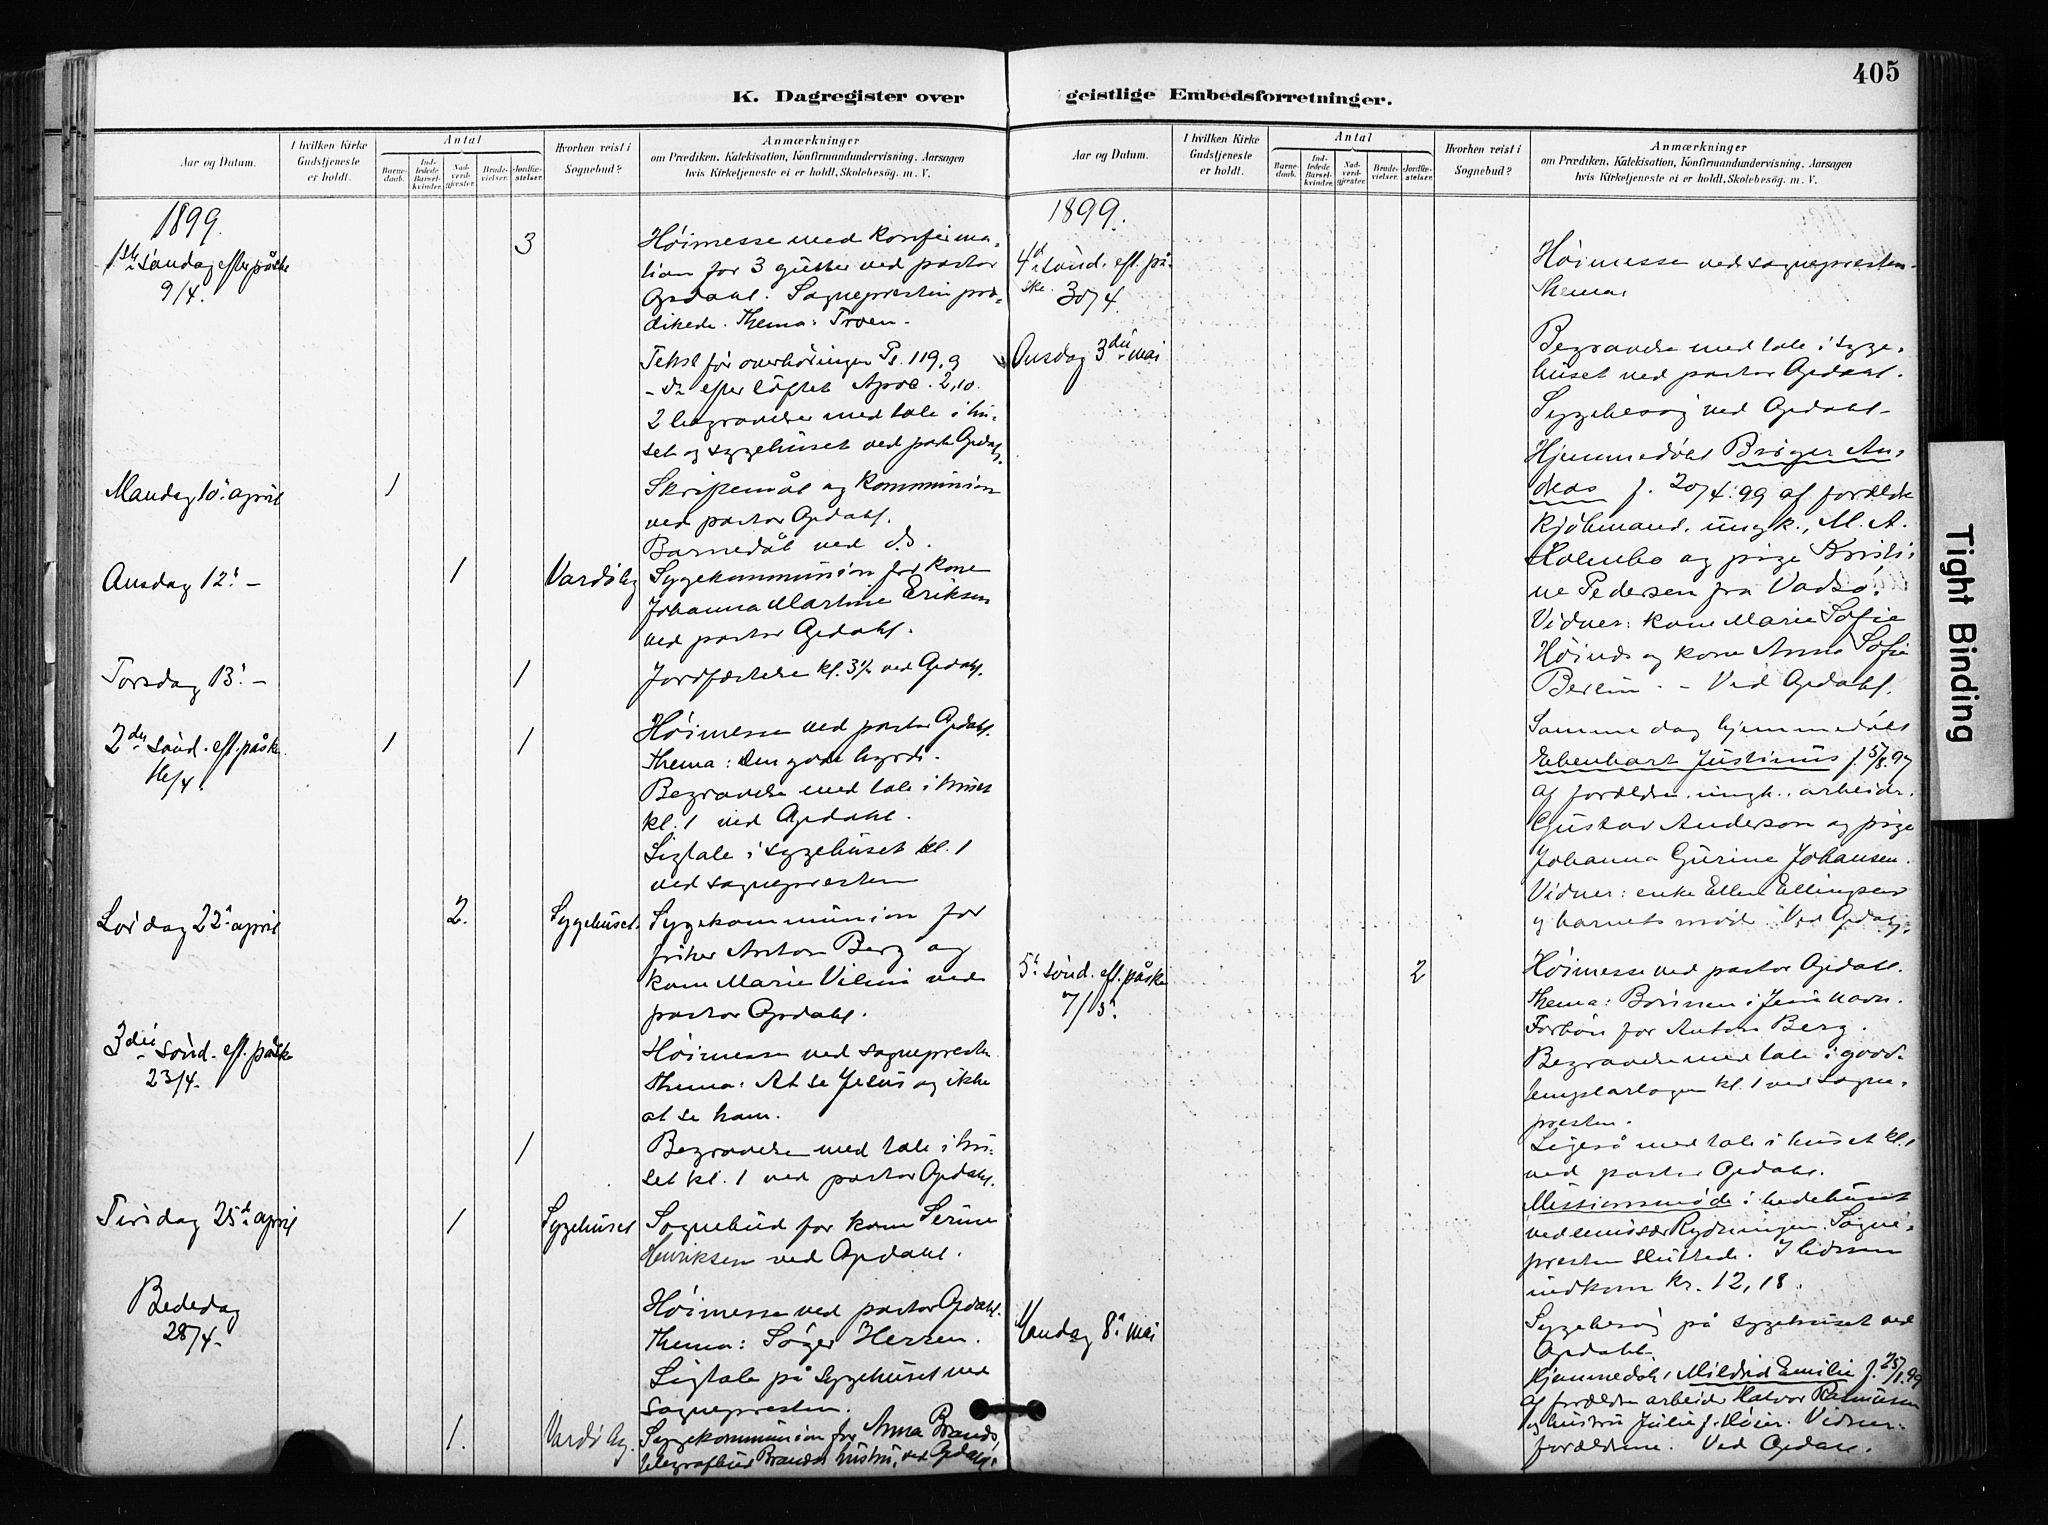 405
K. Dagregister over geistlige Embedsforretninger.
Aar og Datum.
I hvilken Kirke Gudstjeneste er holdt.
Antal
Barne-daab.
Ind-ledede Barsel-kvinder.
Nad-verd-gjester.
Brude-vielser.
Jordfæ-stelser.
Hvorhen reist i Sognebud?
Anmærkninger
om Prædiken, Katekisation, Konfirmandundervisning, Aarsagen
hvis Kirketjeneste ei er holdt, Skolebesøg. m. V.
1899.
1ste søndag efter påske
9/4.
3
Høimesse med konfirma-
tion for 3 gutter ved pastor
Opdahl. Sognepresten præ-
dikede. Thema: Troen.
Tekst før overhøringen Ps. 119,9
- do efter løftet Apoc. 2,10.
2 begravelser med tale i hu-
set og sygehuset ved pastor Opdahl.
Mandag 10. april
1
Skriftemål og kommunion
ved pastor Opdahl.
Barnedåb ved ds.
Onsdag 12. -
1
Vardø by
Sygekommunion for kone
Johanna Martine Eriksen
ved pastor Opdahl.
Torsdag 13. -
1
Jordfæstelse kl. 3½ ved Opdahl.
2den sønd. eft. påske
16/4.
1
1
Høimesse ved pastor Opdahl.
Thema: Den gode hyrde.
Begravelse med tale i huset
kl. 1 ved Opdahl.
Ligtale i sygehuset kl. 1
ved sognepresten
Lørdag 22. april
2.
Sygehuset.
Sygekommunion for
fisker Anton Berg og
kone Marie Vilmi ved
pastor Opdahl.
3die sønd. eft. påske
23/4.
Høimesse ved sognepresten
Thema: At se Jesus og ikke
at se ham.
1
Begravelse med tale i hu-
set kl. 1 ved pastor Opdahl.
Tirsdag 25de april
1
Sygehuset
Sognebud for kone Serine
Henriksen ved Opdahl.
Bededag
28/4.
Høimesse ved pastor Opdahl.
Thema: Søger Herren.
Ligtale på Sygehuset ved
sognepresten.
1.
Vardø by.
Sygekommunion for Anna Brands,
telegrafbud Brands hustru, ved Opdahl.
Aar og Datum.
I hvilken Kirke Gudstjeneste er holdt.
Antal
Barne-daab.
Ind-ledede Barsel-kvinder.
Nad-verd-gjester.
Brude-vielser.
Jordfæ-stelser.
Hvorhen reist i Sognebud?
Anmærkninger
om Prædiken, Katekisation, Konfirmandundervisning, Aarsagen
hvis Kirketjeneste ei er holdt, Skolebesøg. m. V.
1899.
4de sønd. eft. på-
ske. 30/4.
Høimesse ved sognepresten.
Thema:
Onsdag 3die mai
Begravelse med tale i syge-
huset ved pastor Opdahl.
Sygebesøg ved Opdahl.
Hjemmedøbt Birger An-
dreas f. 20/4.99 af forældre
kjøbmand, ungk., M. A.
Holmbo og pige Kristi-
ne Pedersen fra Vadsø.
Vidner: kone Marie Sofie
og kone Anna Sofie
Berlin. - Ved Opdahl.
Samme dag hjemmedøbt
Ebenhart Justinus f. 5/8.97
af forældre ungk. arbeider
Gustav Anderson og pige
Johanna Gurine Johansen.
Vidner: enke Ellen Ellingsen
og barnets moder. Ved Opdahl.
5. sønd. eft. påske
7/5.
2
Høimesse ved pastor Opdahl.
Thema: Bønnen i Jesu navn.
Forbøn for Anton Berg.
Begravelse med tale i good-
templarlogen kl. 1 ved sogne-
presten.
Ligeså med tale i huset kl. 1
ved pastor Opdahl.
Missionsmøde i bedehuset
ved emissær Rydningen. Sogne-
presten sluttede. I
indkom kr. 12,18.
Mandag 8. mai
Sygebesøg på sygehuset ved
Opdahl.
Hjemmedøbt Mildrid Emilie f. 25/1.99
af forældre arbeider Halvor Rasmussen
og hustru Julie f. Høier. Vidner:
forældrene. Ved Opdahl.
Tight Binding